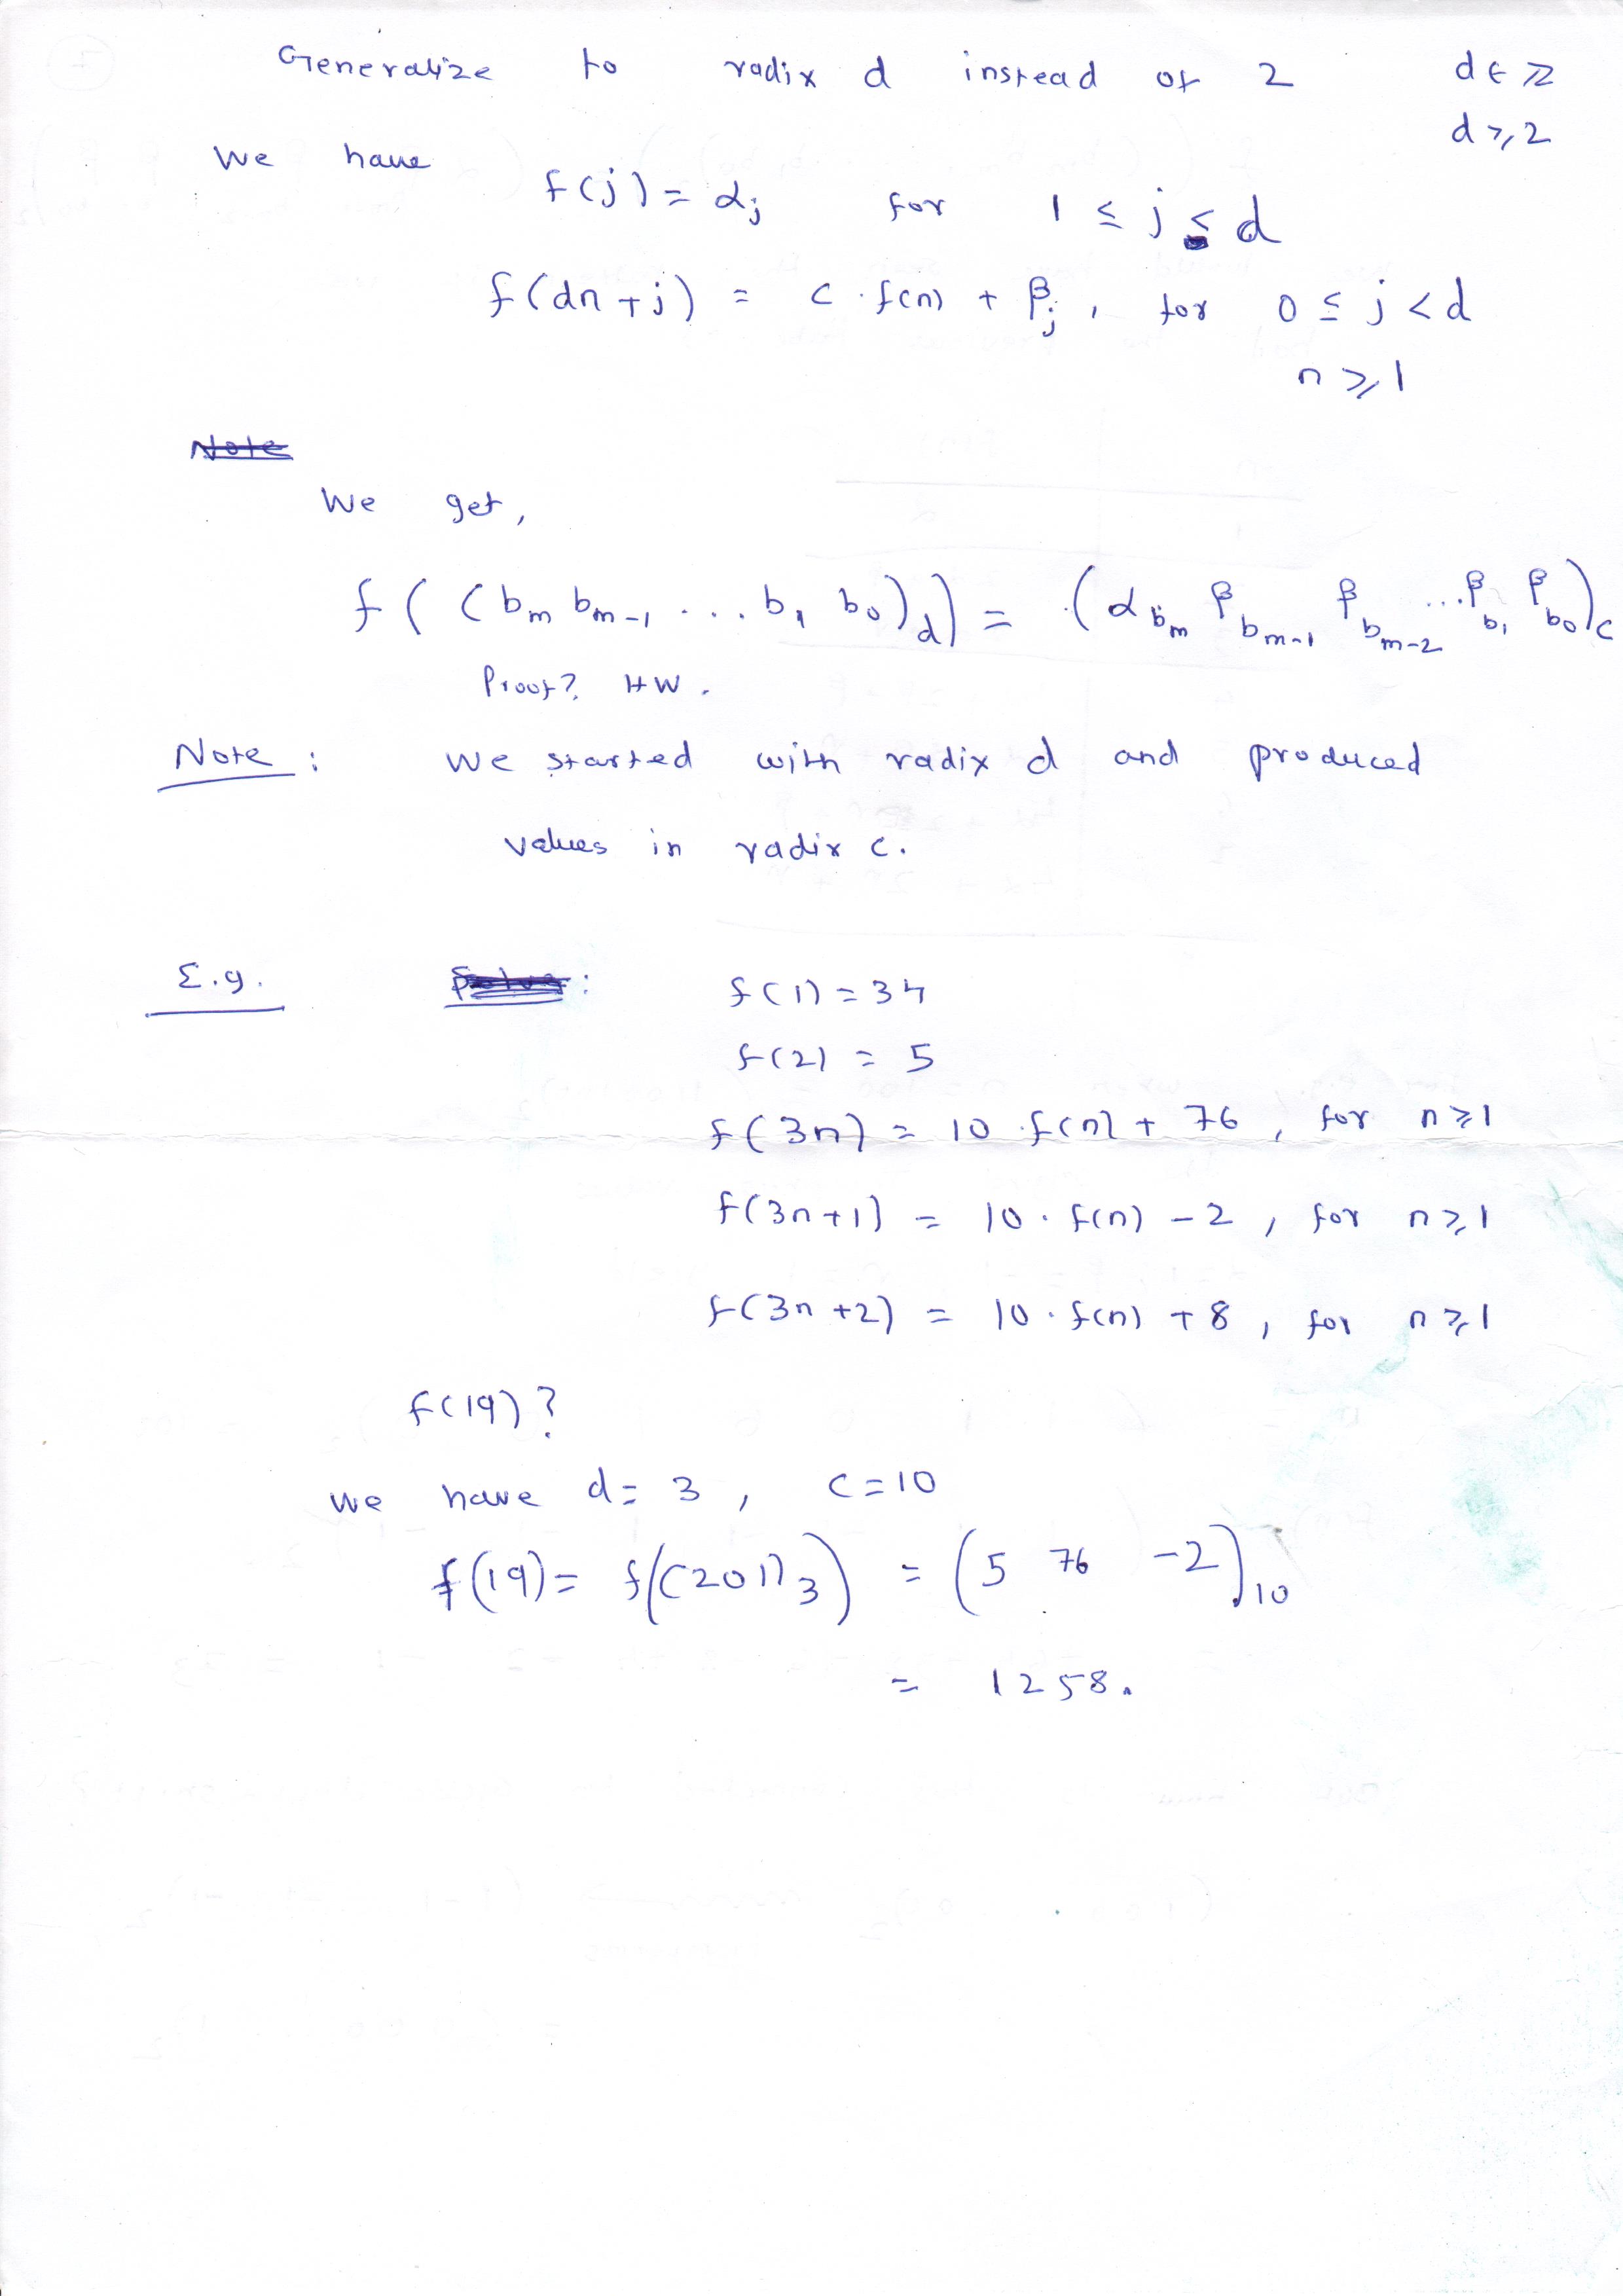 Generalize to radix d instead of 2 d ∈ ℤ
d ≥ 2
We have
f(j) = α_j for 1 ≤ j ≤ d
f(dn + j) = c · f(n) + β_j , for 0 ≤ j < d
n ≥ 1
Note
We get,
f ( (b_m b_{m-1} ... b_1 b_0)_d ) = (α_{b_m} β_{b_{m-1}} β_{b_{m-2}} ... β_{b_1} β_{b_0})_c
Proof? HW.
Note : We started with radix d and produced
values in radix c.
E.g. : f(1) = 34
f(2) = 5
f(3n) = 10 · f(n) + 76 , for n ≥ 1
f(3n+1) = 10 · f(n) - 2 , for n ≥ 1
f(3n+2) = 10 · f(n) + 8 , for n ≥ 1
f(19) ?
We have d = 3 , c = 10
f(19) = f((201)_3) = (5 76 -2)_10
= 1258.